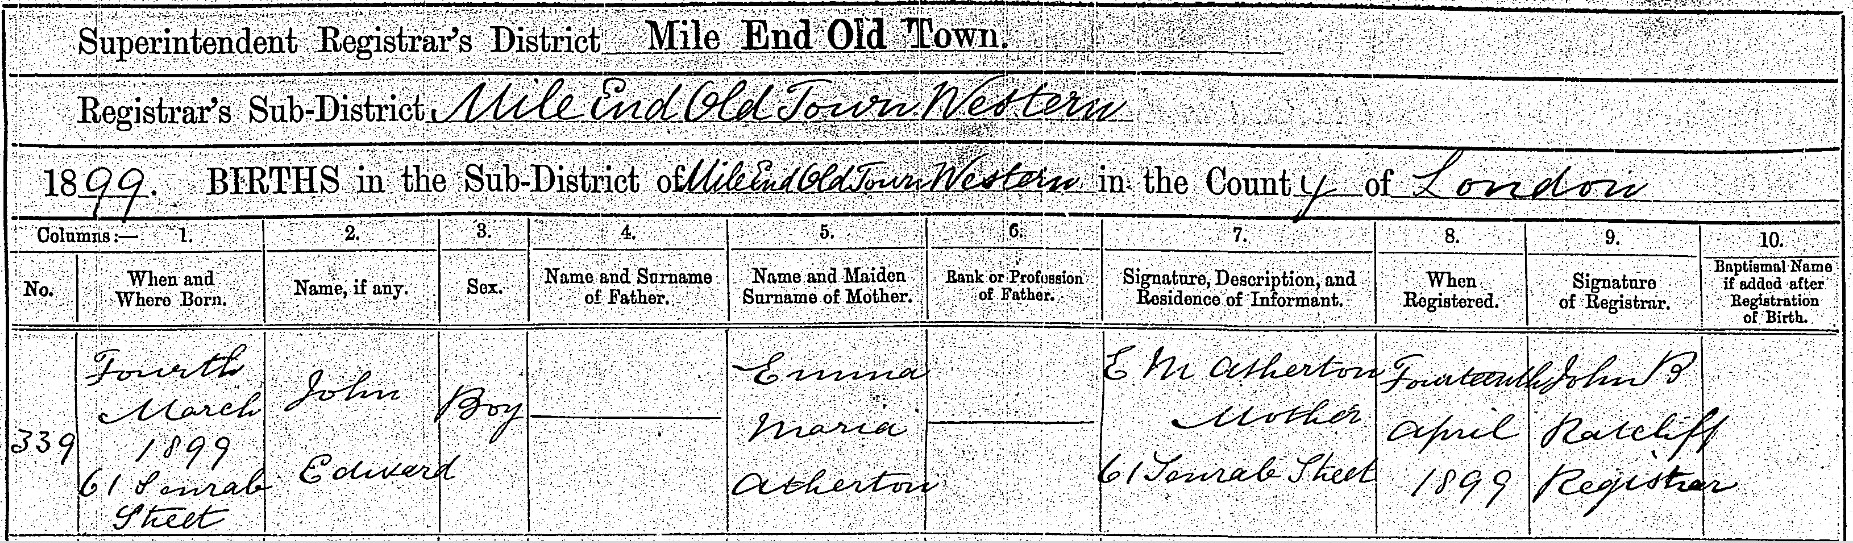 Superintendent Registrar's District Mile End Old Town.
Registrar's Sub-District Mile End Old Town Western
1899. BIRTHS in the Sub-District of Mile End Old Town Western in the County of London
Columns:— 1. 2. 3. 4. 5. 6. 7. 8. 9. 10.
No. When and Where Born. Name, if any. Sex. Name and Surname of Father. Name and Maiden Surname of Mother. Rank or Profession of Father. Signature, Description, and Residence of Informant. When Registered. Signature of Registrar. Baptismal Name if added after Registration of Birth.
339
Fourth
March
1899
61 Senrab
Street
John
Edward
Boy
Emma
Maria
Atherton
E M Atherton
Mother
61 Senrab Street
Fourteenth
April
1899
John B
Ratcliff
Registrar